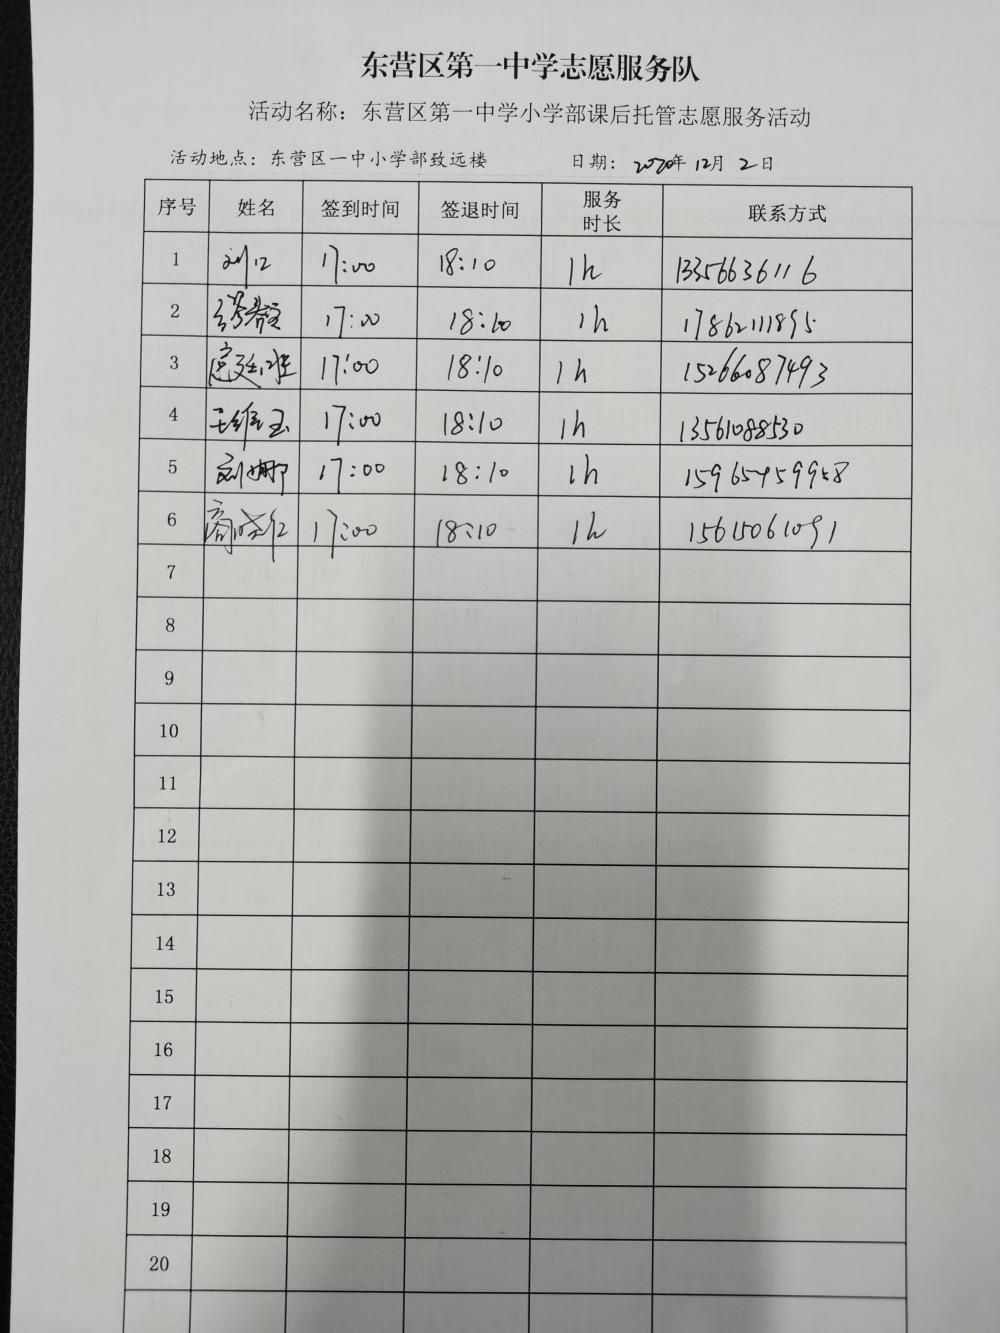 东营区第一中学志愿服务队
活动名称：东营区第一中学小学部课后托管志愿服务活动
活动地点：东营区一中小学部致远楼 日期：2020年12月2日
序号 姓名 签到时间 签退时间 服务时长 联系方式
1 17:00 18:10 1h 13356636116
2 17:00 18:10 1h 17862111895
3 17:00 18:10 1h 15266087493
4 王维玉 17:00 18:10 1h 13561088530
5 刘娜 17:00 18:10 1h
6 商晓红 17:00 18:10 1h 15615061091
7
8
9
10
11
12
13
14
15
16
17
18
19
20